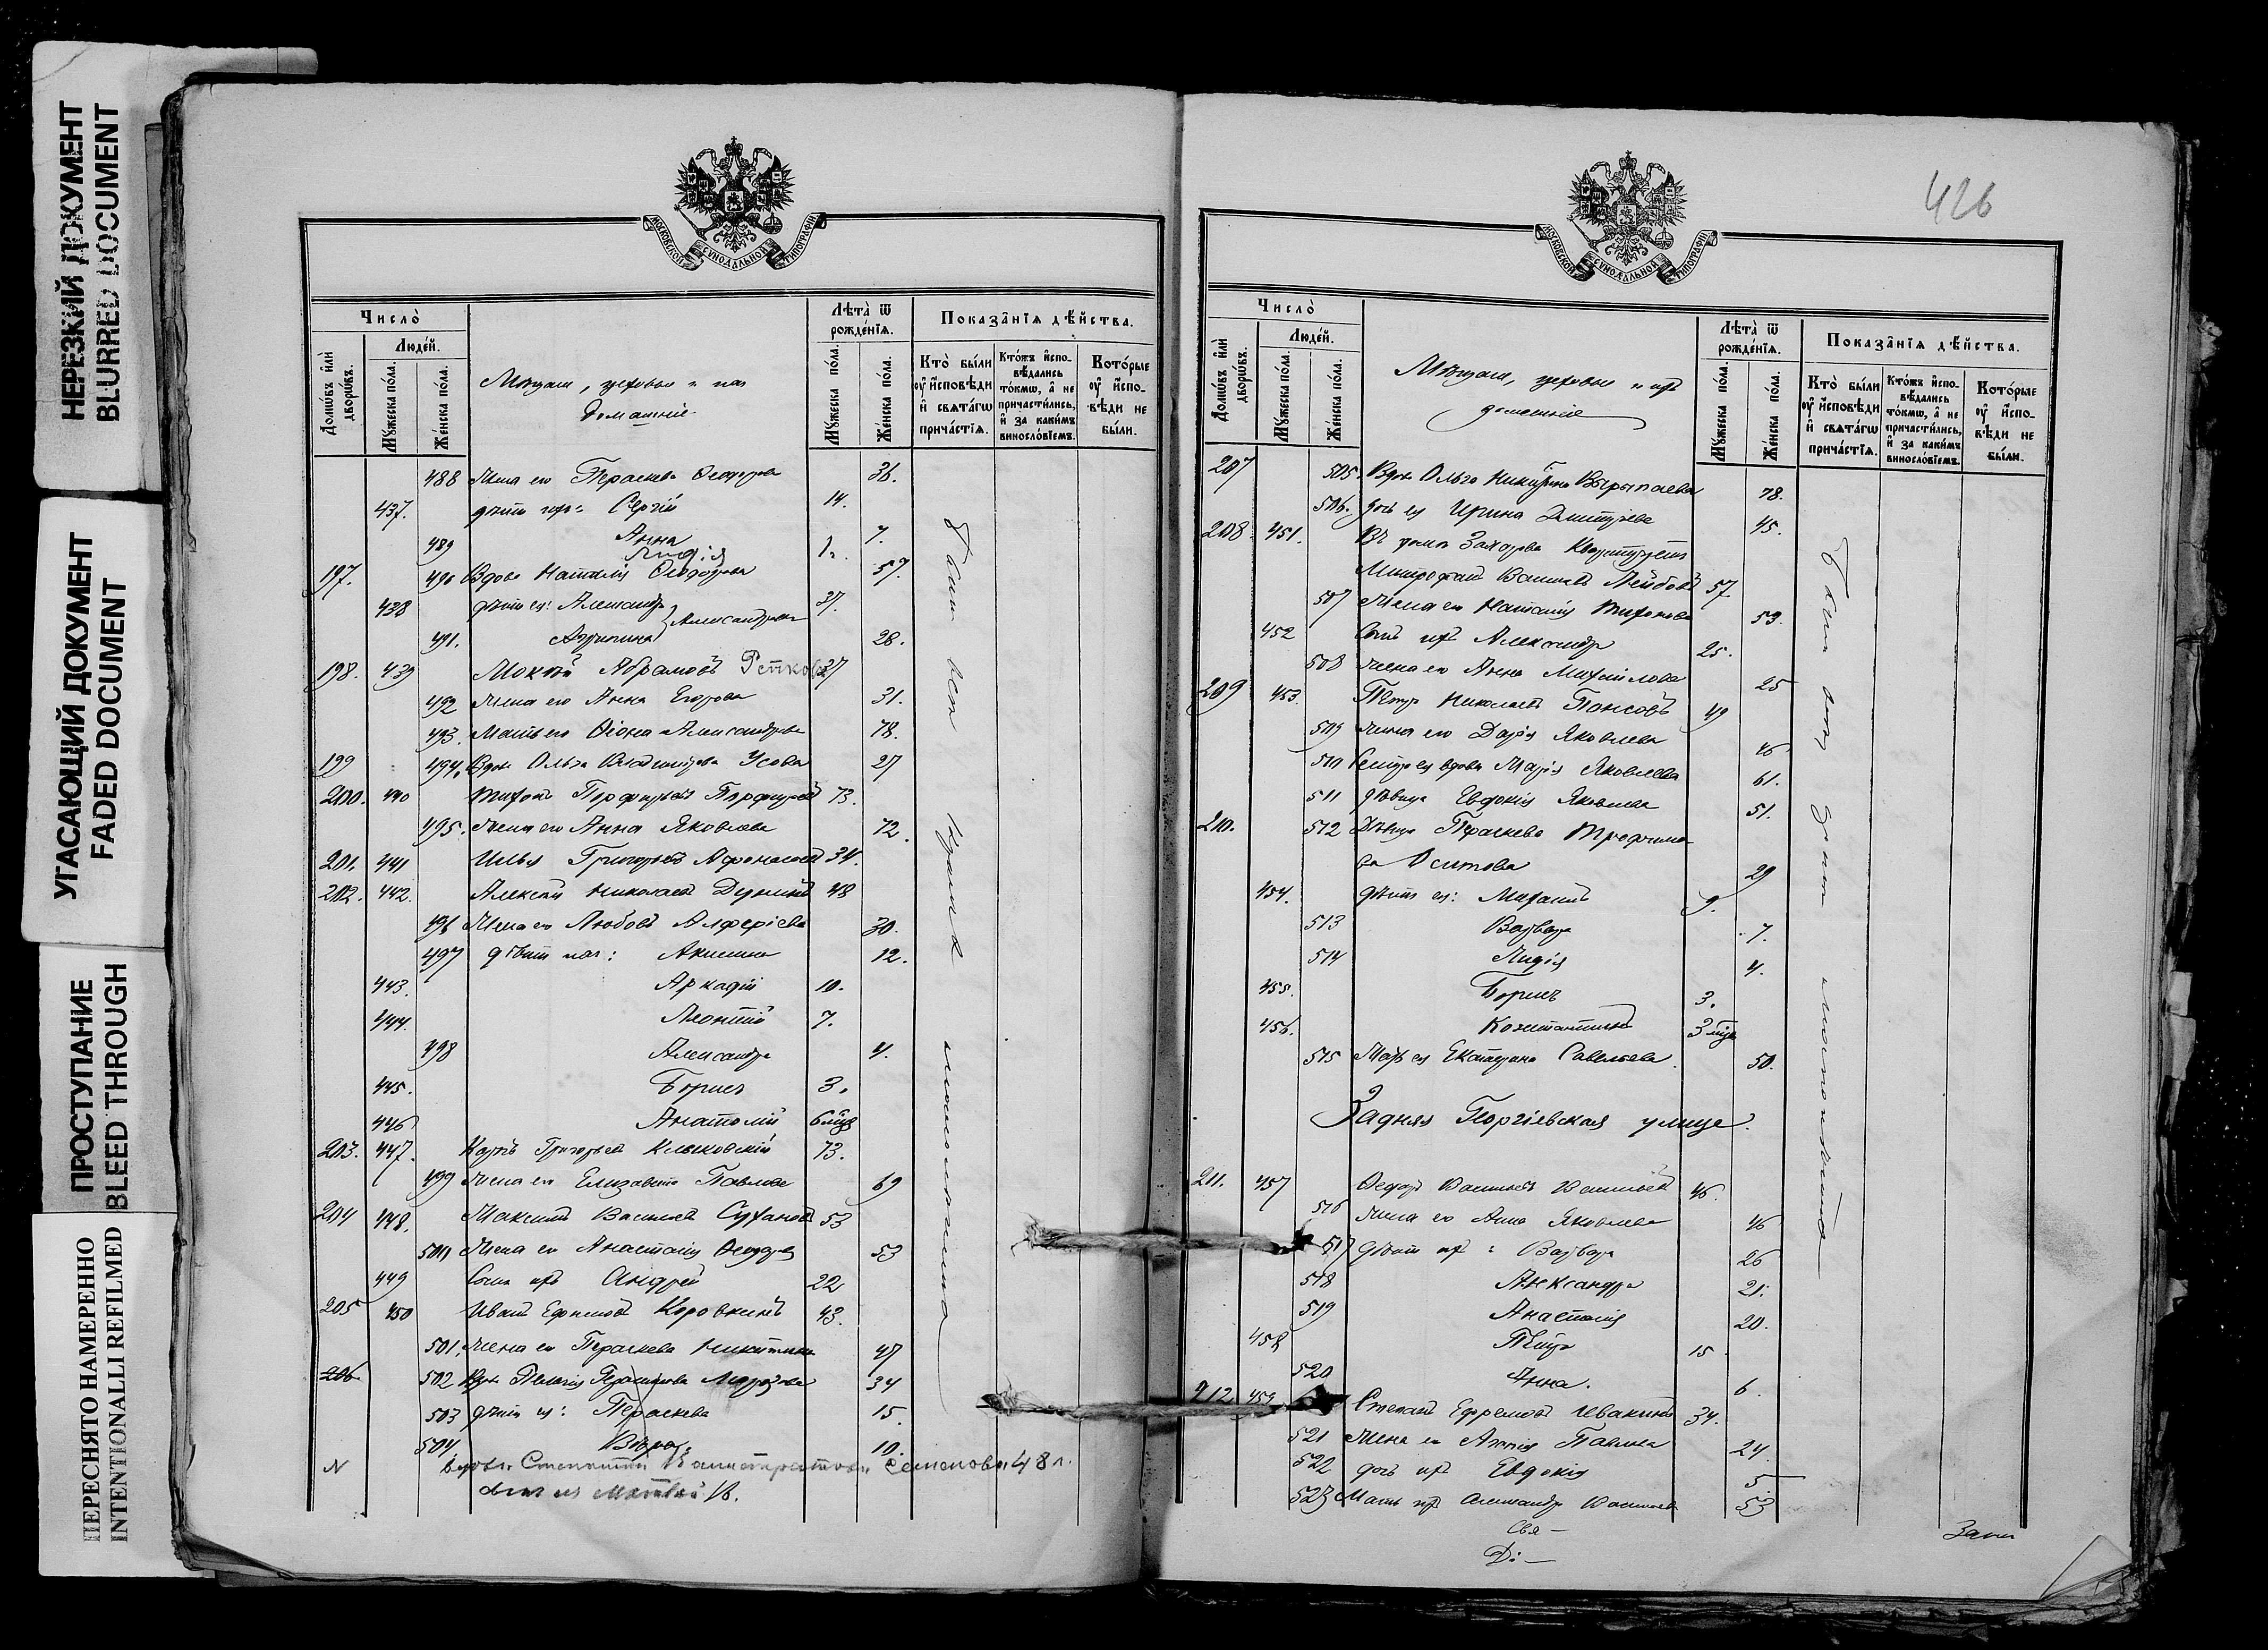 НЕРЕЗКИЙ ДОКУМЕНТ
BLURRED DOCUMENT
УГАСАЮЩИЙ ДОКУМЕНТ
FADED DOCUMENT
ПРОСТУПАНИЕ
BLEED THROUGH
ПЕРЕСНЯТО НАМЕРЕННО
INTENTIONALLI REFILMED
МОСКОВСКОЙ СУНОДАЛЬНОЙ ТИПОГРАФІИ
Число̀
Домѡвъ и҆лѝ дворѡвъ.
Люде́й.
Мꙋ́жеска по́ла.
Же́нска по́ла.
Мѣщане, цеховые и их
домашніе
Лѣта̀ ѿ рожде́нїѧ.
Мꙋ́жеска по́ла.
Же́нска по́ла.
Показа̑нїѧ дѣ́йства.
Кто̀ бы́ли ᲂу҆ и҆сповѣ́ди и҆ свѧта́гѡ прича́стїѧ.
Кто́жъ и҆спо-вѣ́дались то́кмѡ, а҆ не причасти́лись, и҆ за каки́мъ винословїемъ.
Кото́рые ᲂу҆ и҆спо-вѣ́ди не бы́ли.
488 Жена его Параскева Ѳеодорова 36.
437. дѣти ихъ: Сергій 14.
489 Анна 7.
Лидія
197. 490 Вдова Наталія Ѳеодорова 57.
438 дѣти ея: Александръ Александровы 37.
491. Агрипина 28.
198. 439 Мокій Абрамовъ 37
492 Жена его Анна Егорова 31.
493. Мать его Ѳіона Александрова 78.
199 494. Вдова Ольга Владимірова Усова 27
200. 440 Тихонъ Порфирьевъ Порфирьевъ 73.
495. Жена его Анна Яковлева 72.
201. 441 Илья Григорьевъ Афонасьевъ 34.
202. 442. Алексѣй Николаевъ 48
496 Жена его Любовь Алферіева 30.
497 дѣти их: Акилина 12.
443. Аркадій 10.
444. Леонтій 7.
498 Александра 4.
445. Борисъ 3.
446 Анатолій 6 мцв
203. 447. Карпъ Григорьевъ Клыковскій 73.
499 Жена его Елизавета Павлова 69
204 448. Максимъ Васильевъ Сухановъ 53
500 Жена его Анастасія Ѳеодорова 53
449 Сынъ ихъ Андрей 22
205 450 Иванъ Ефимовъ Коровкинъ 43.
501. Жена его Параскева Никитина 47
206 502 Вдова Пелагія 34
503 дѣти ея: Параскева 15.
504. Вѣра 10.
N вдова Семенова 48 л.
Были всѣ
426
МОСКОВСКОЙ СУНОДАЛЬНОЙ ТИПОГРАФІИ
Число̀
Домѡвъ и҆лѝ дворѡвъ.
Люде́й.
Мꙋ́жеска по́ла.
Же́нска по́ла.
Мѣщане, цеховые и ихъ
домашніе
Лѣта̀ ѿ рожде́нїѧ.
Мꙋ́жеска по́ла.
Же́нска по́ла.
Показа̑нїѧ дѣ́йства.
Кто̀ бы́ли ᲂу҆ и҆сповѣ́ди и҆ свѧта́гѡ прича́стїѧ.
Кто́жъ и҆спо-вѣ́дались то́кмѡ, а҆ не причасти́лись, и҆ за каки́мъ винословїемъ.
Кото́рые ᲂу҆ и҆спо-вѣ́ди не бы́ли.
207 505. Вдова Ольга Никитина Вырыпаева 78.
506. дочь ея Ирина Дмитріева 45.
208. 451. Въ домѣ Захарова
Митрофанъ Васильевъ 57.
507 Жена его Наталія Тихонова 53.
452 Сынъ ихъ Александръ 25.
508 Жена его Анна Михайлова 25
209 453. Петръ Николаевъ 49
509 Жена его Дарія Яковлева 46
510 Сестра ея вдова Марія Яковлева 61.
511 дѣвица Евдокія Яковлева 51.
210. 512 Дѣвица Параскева Трофимо-
ва Осипова 29
454. дѣти ея: Михаилъ 9.
513 Варвара 7.
514 Лидія 4.
455. Борисъ 3.
456. Константинъ 3 мцв
515 Мать ея Екатерина Савельева 50.
Задняя Георгіевская улица.
211. 457 Ѳедоръ Васильевъ Васильевъ 46.
516 Жена его Анна Яковлева 46
517 дѣти ихъ: Варвара 26
518 Александра 21.
519 Анастасія 20.
458 Петръ 15
520 Анна. 6.
212 459 Степанъ Ефремовъ Ивакинъ 34.
521 Жена его Павлова 24.
522 дочь ихъ Евдокія 5
523 Мать ихъ Александра Васильева 53
Были
Свя—
Ді—